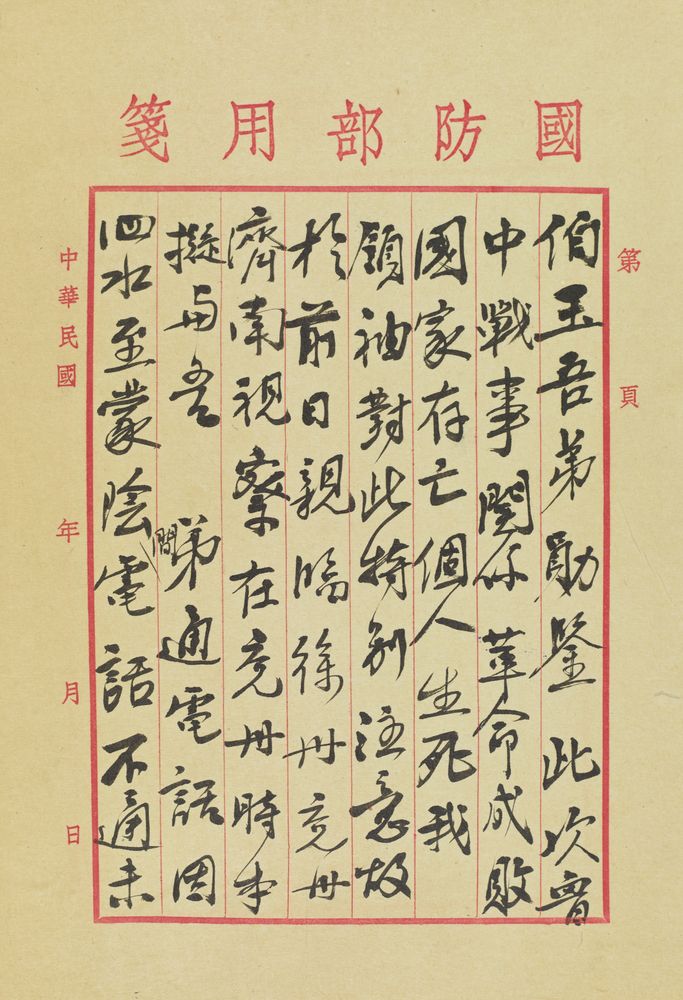 國防部用箋
第 頁
伯玉吾弟勛鑒此次魯
中戰事關係革命成敗
國家存亡個人生死我
領袖對此特別注意故
於前日親臨徐州兖州
濟南視察在兖州時本
擬與吾 弟通電話因
泗水至蒙陰間電話不通未
中華民國 年 月 日